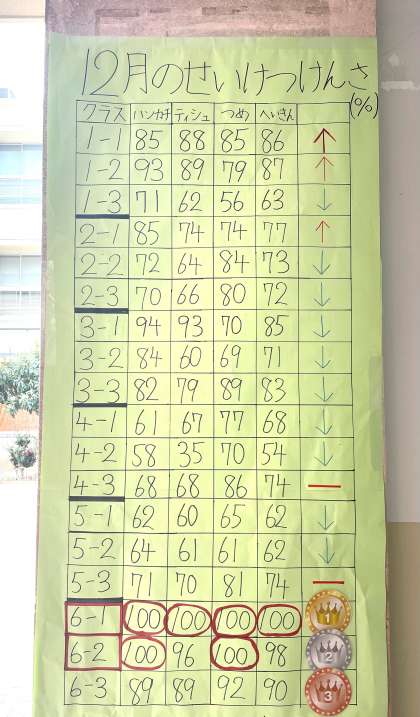 12月のせいけつけんさ
(%)
クラス ハンカチ ティシュ つめ へいきん
1-1 85 88 85 86 ↑
1-2 93 89 79 87 ↑
1-3 71 62 56 63 ↓
2-1 85 74 74 77 ↑
2-2 72 64 84 73 ↓
2-3 70 66 80 72 ↓
3-1 94 93 70 85 ↓
3-2 84 60 69 71 ↓
3-3 82 79 89 83 ↓
4-1 61 67 77 68 ↓
4-2 58 35 70 54 ↓
4-3 68 68 86 74 —
5-1 62 60 65 62 ↓
5-2 64 61 61 62 ↓
5-3 71 70 81 74 —
6-1 100 100 100 100 1
6-2 100 96 100 98 2
6-3 89 89 92 90 3